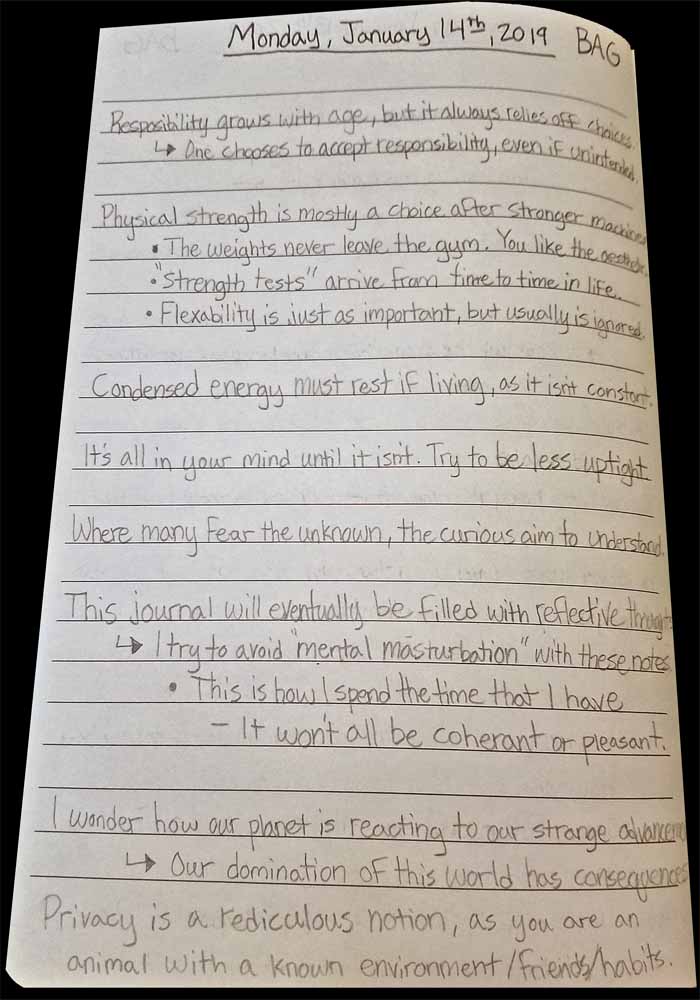 Monday, January 14th, 2019 BAG
Resposibility grows with age, but it always relies off choices.
↳ One chooses to accept responsibility, even if unintended.
Physical strength is mostly a choice after stronger machines
• The weights never leave the gym. You like the aesthetic.
• "Strength tests" arrive from time to time in life.
• Flexability is just as important, but usually is ignored.
Condensed energy must rest if living, as it isn't constant.
It's all in your mind until it isn't. Try to be less uptight
Where many fear the unknown, the curious aim to understand.
This journal will eventually be filled with reflective thoughts
↳ I try to avoid "mental masturbation" with these notes
• This is how I spend the time that I have
– It won't all be coherant or pleasant.
I wonder how our planet is reacting to our strange advancem
↳ Our domination of this world has consequences
Privacy is a rediculous notion, as you are an
animal with a known environment/friends/habits.